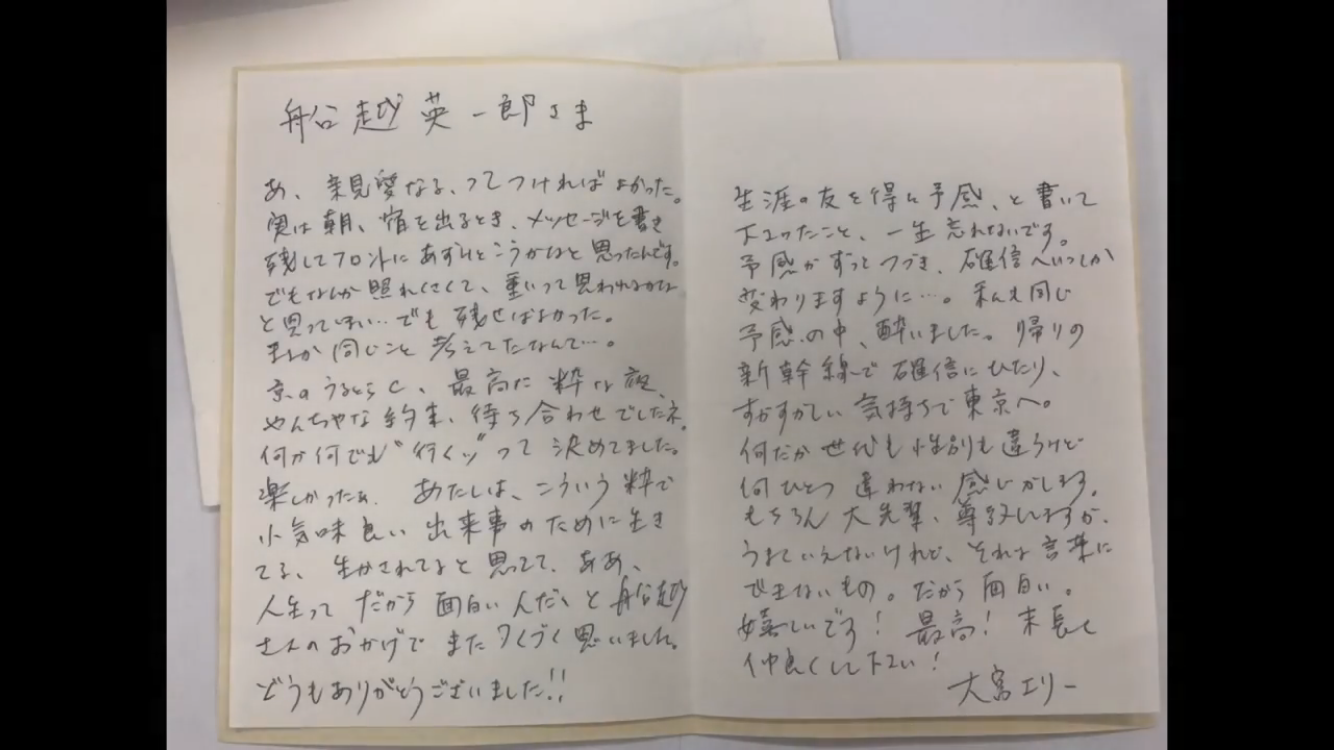 船越英一郎さま
あ、親愛なる、ってつければよかった。
実は朝、宿を出るとき、メッセージを書き
残してフロントにあずけとこうかなと思ったんです。
でもなんか照れくさくて、重いって思われるかな
と思ってしまい…でも残せばよかった。
まさか同じこと考えてたなんて…。
京の、最高に粋な夜、
やんちゃな約束、待ち合わせでしたネ。
何が何でも“行くッ”って決めてました。
楽しかったぁ。あたしは、こういう粋で
小気味良い出来事のために生き
てる、生かされてると思ってて、ああ、
人生って だから面白いんだ、と船越
さんのおかげでまたつくづく思いました。
どうもありがとうございました!!
生涯の友を得た予感、と書いて
下さったこと、一生忘れないです。
予感がずっとつづき、確信へいつしか
変わりますように…。私も同じ
予感の中、酔いました。帰りの
新幹線で確信にひたり、
すがすがしい気持ちで東京へ。
何だか世代も性別も違うけど
何ひとつ違わない感じがします。
もちろん大先輩、尊敬しますが、
うまくいえないけれど、それは言葉に
できないもの。だから面白い。
嬉しいです!最高!末長く
仲良くして下さい!
大宮エリー